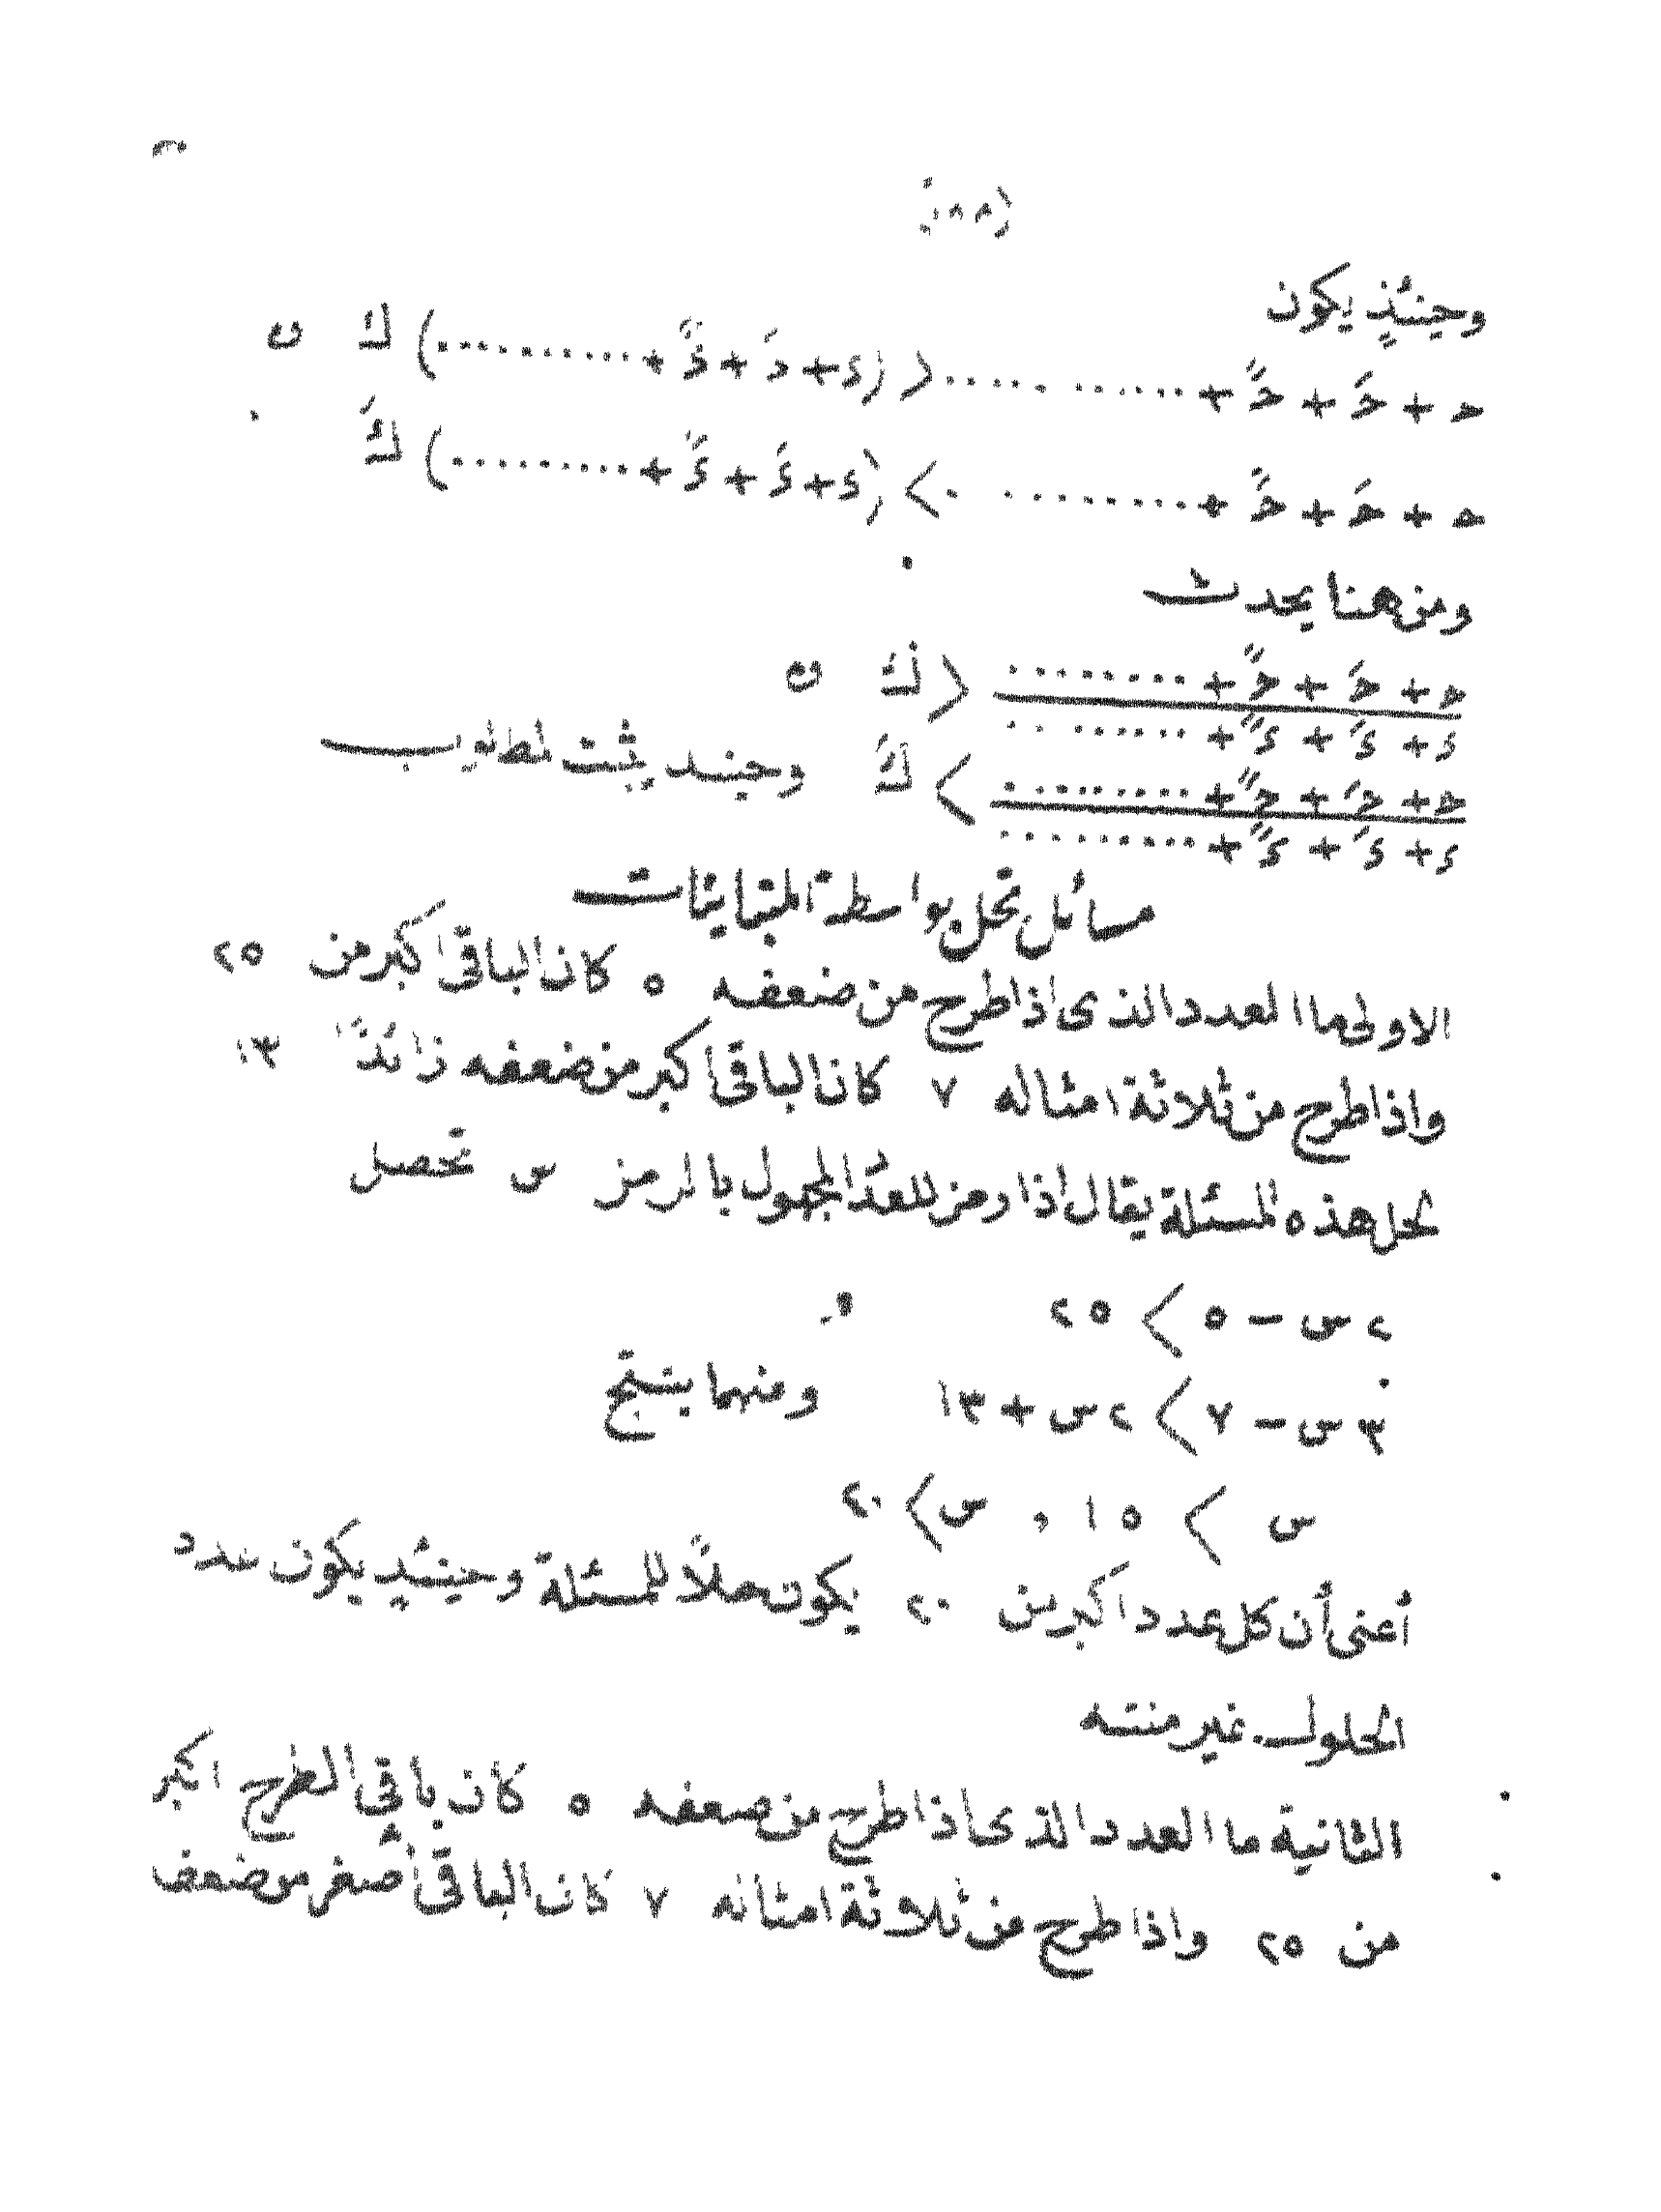 وحينئذٍ يكون
حـ + حَـ + حًـ + ........... < (ء + ءَ + ءً + ...........) ك و
حـ + حَـ + حًـ + ........... > (ء + ءَ + ءً + ...........) كَ
ومن هنا يحدث
حـ + حَـ + حًـ + ........... < ك و
ء + ءَ + ءً + ...........
حـ + حَـ + حًـ + ........... > كَ وحينئذ يثبت المطلوب
ء + ءَ + ءً + ...........
مسائل تحل بواسطة المتباينات
الاولى ما العدد الذى اذا طرح من ضعفه ٥ كان الباقى اكبر من ٢٥
واذا طرح من ثلاثة امثاله ٧ كان الباقى اكبر من ضعفه زائدًا ١٣
لحل هذه المسئلة يقال اذا رمز للعدد المجهول بالرمز س تحصل
٢س − ٥ > ٢٥ و
٣س − ٧ > ٢س + ١٣ ومنهما ينتج
س > ١٥ , س > ٢٠
أعنى أن كل عدد اكبر من ٢٠ يكون حلاً للمسئلة وحينئذٍ يكون عدد
الحلول غير منته
الثانية ما العدد الذى أذا طرح من ضعفه ٥ كان باقى الطرح اكبر
من ٢٥ واذا طرح من ثلاثة امثاله ٧ كان الباقى أصغر من ضعف